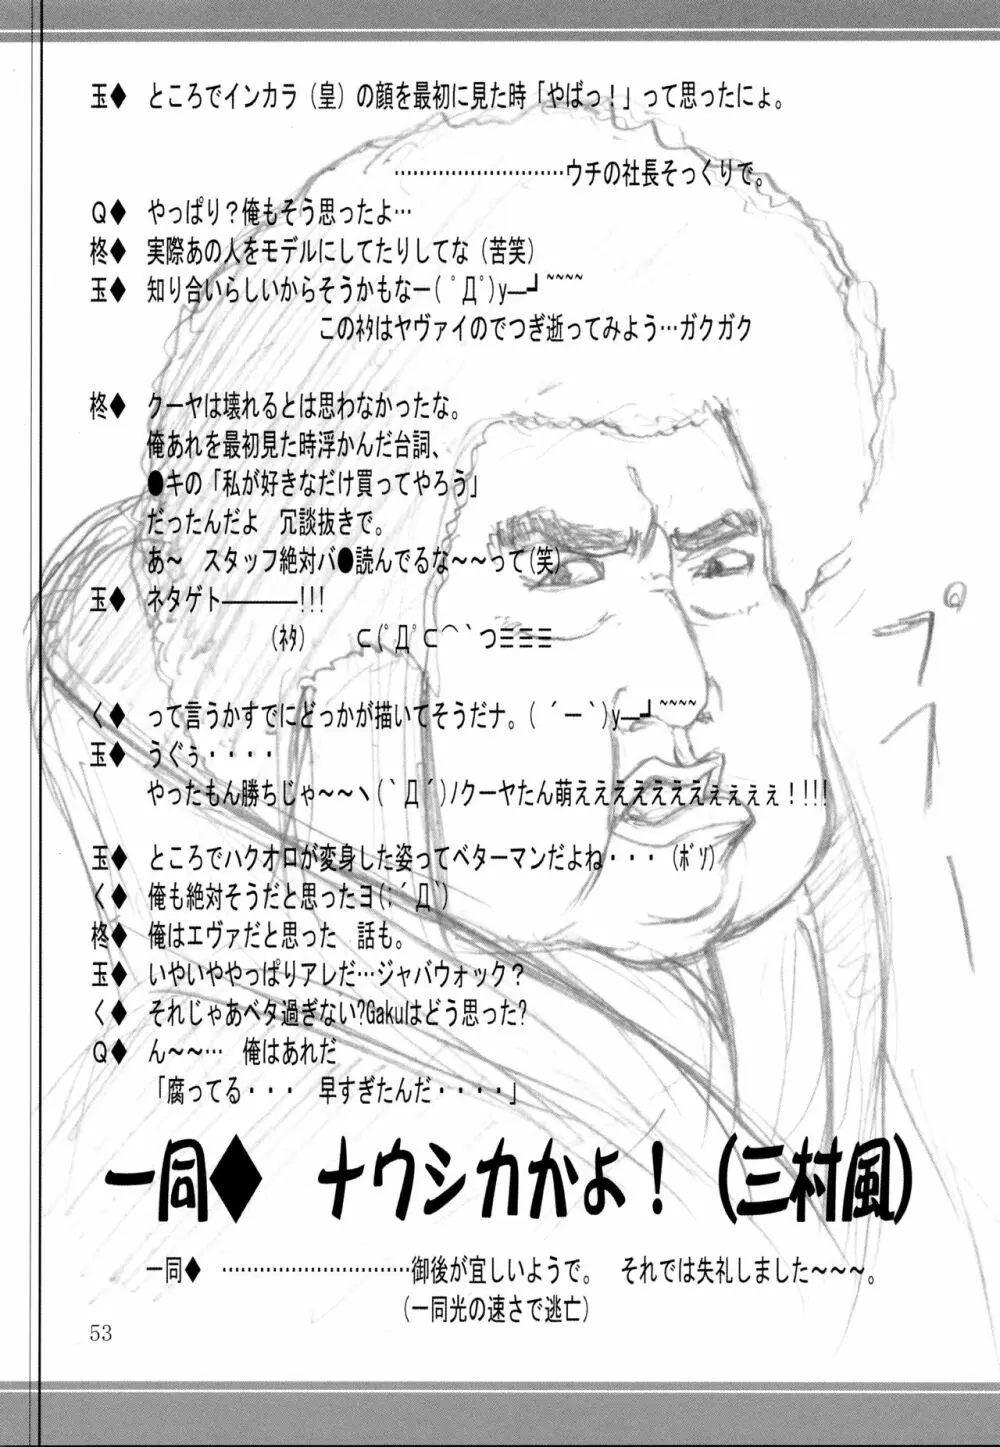 玉◆　ところでインカラ（皇）の顔を最初に見た時「やばっ！」って思ったにょ。
…………………………ウチの社長そっくりで。
Ｑ◆　やっぱり？俺もそう思ったよ…
柊◆　実際あの人をモデルにしてたりしてな（苦笑）
玉◆　知り合いらしいからそうかもなー( ﾟДﾟ)y―┛~~~~
このﾈﾀはヤヴァイのでつぎ逝ってみよう…ガクガク
柊◆　クーヤは壊れるとは思わなかったな。
俺あれを最初見た時浮かんだ台詞、
●キの「私が好きなだけ買ってやろう」
だったんだよ　冗談抜きで。
あ～　スタッフ絶対バ●読んでるな～～って(笑)
玉◆　ネタゲト――――!!!
(ﾈﾀ)　　⊂(ﾟДﾟ⊂⌒｀つ≡≡≡
く◆　って言うかすでにどっかが描いてそうだナ。( ´ー`)y―┛~~~~
玉◆　うぐぅ・・・・
やったもん勝ちじゃ～～ヽ(｀Д´)ﾉクーヤたん萌えええええええぇぇぇぇ！!!!
玉◆　ところでハクオロが変身した姿ってベターマンだよね・・・（ﾎﾞｿ）
く◆　俺も絶対そうだと思ったヨ(;´Д`)
柊◆　俺はエヴァだと思った　話も。
玉◆　いやいややっぱりアレだ…ジャバウォック？
く◆　それじゃあベタ過ぎない?Gakuはどう思った?
Ｑ◆　ん～～…　俺はあれだ
「腐ってる・・・　早すぎたんだ・・・・」
一同◆　ナウシカかよ！（三村風）
一同◆　…………………………御後が宜しいようで。　それでは失礼しました～～～。
（一同光の速さで逃亡）
53